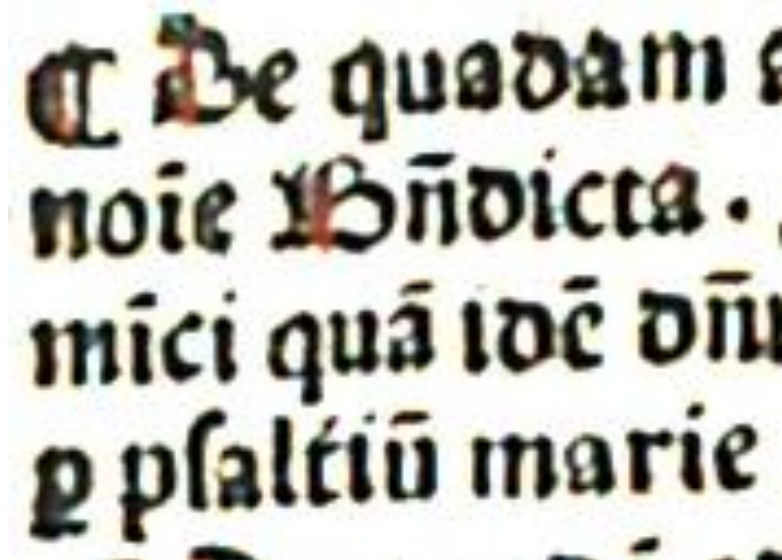 ¶ De quadam
noīe Bn̄dicta .
mīci quā idē dn̄
ꝑ pſalťiū marie